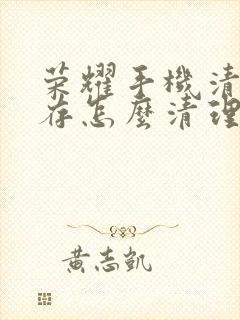 荣耀手機清
存怎麼清理
黃志凱